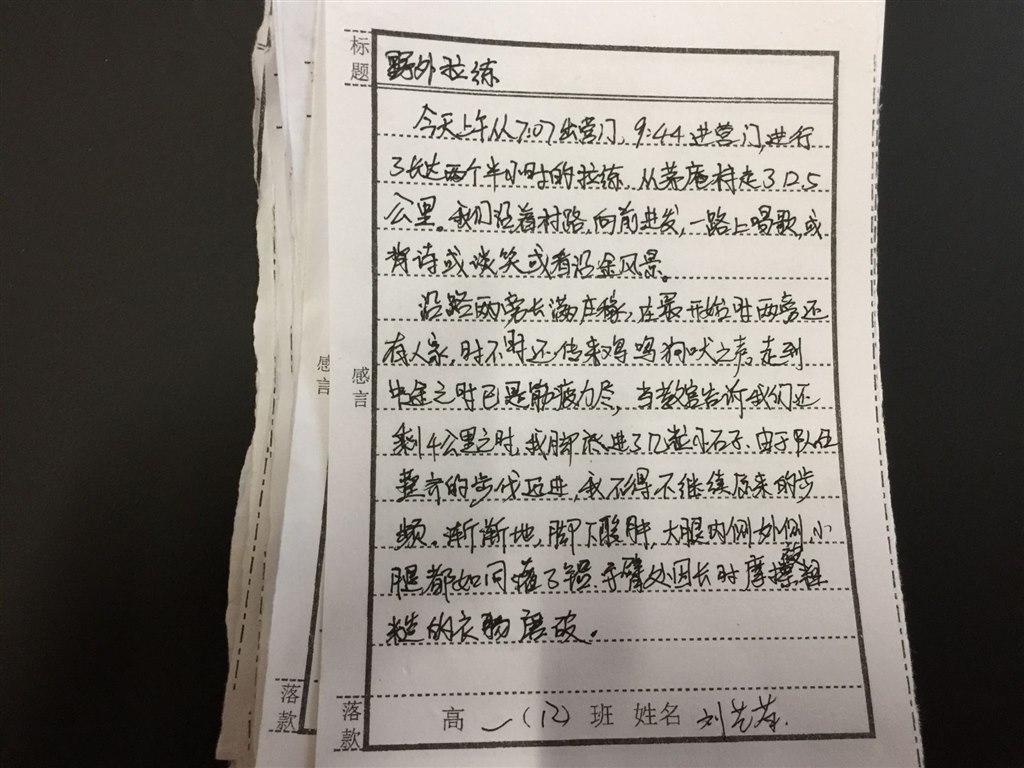 标题
野外拉练
今天上午从7:07出营门,9:44进营门,进行
了长达两个半小时的拉练,从茅庵村走了12.5
公里。我们沿着村路,向前进发,一路上唱歌,或
背诗或谈笑或看沿途风景。
沿路两旁长满庄稼,在最开始时两旁还
有人家,时不时还传来鸡鸣狗吠之声,走到
中途之时已是筋疲力尽,当教官告诉我们还
剩4公里之时,我脚底进了几粒小石子,由于队伍
整齐的步伐迈进,我不得不继续原来的步
频。渐渐地,脚下酸胀,大腿内侧外侧,小
腿都如同灌了铅,手臂处因长时摩擦被粗
糙的衣物磨破。
感言
感言
落款
落款
高一(12)班 姓名 刘艺